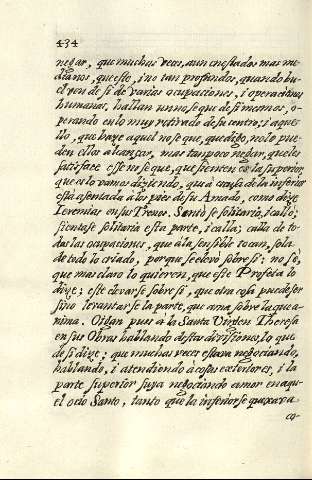 434
negar, que muchas veces, aun en estados mas me-
dianos, que este, i no tan profundos, quando bu-
elven de si de varias ocupaciones, i operaciones
humanas, hallan un no se que de si mesmos, o-
perando en lo muy retirado de su centro; i aque-
llo, que haze aquel no se que, que digo, no lo pue-
den ellos alcançar, mas tampoco negar, que les
satisface esse no se que, que sienten en la superior,
que es lo vamos diziendo, que a causa de la inferior
està asentada a los pies de su Amado, como dize
Ieremias en sus Trenos. Sentòse solitaria, i callò;
sientase solitaria esta parte, i calla; calla de to-
das las ocupaciones, que à la sensible tocan, sola
de todo lo criado, porque se elevò sobre si: no sè,
que mas claro lo quieren, que este Profeta lo
dize; este elevarse sobre si, que otra cosa puede ser
sino levantarse la parte, que ama sobre la que a-
nima. Oigan pues à la Santa Virgen Theresa
en sus Obras hablando desta division, lo que
de si dize: que muchas veces estava negociando,
hablando, i atendiendo à cosas exteriores, i la
parte superior suya negociando amor en aqu-
el ocio Santo, tanto que la inferior se quexava
co-